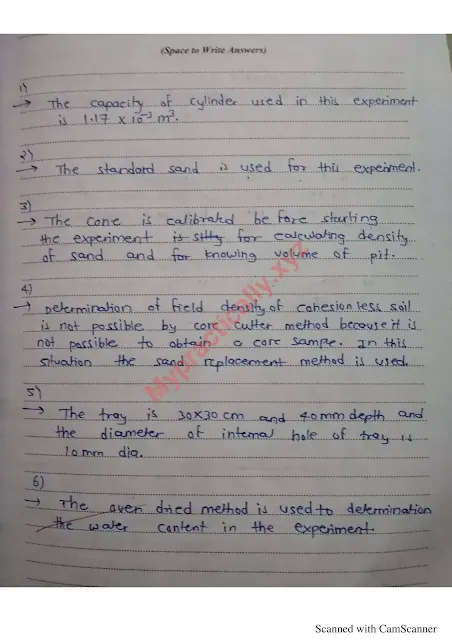 (Space to Write Answers)
1)
→ The capacity of cylinder used in this experiment
is 1.17 x 10⁻³ m³.
2)
→ The standard sand is used for this experiment.
3)
→ The cone is calibrated before starting
the experiment is for calculating density
of sand and for knowing volume of pit.
4)
→ Determination of field density of cohesionless soil
is not possible by core cutter method because it is
not possible to obtain a core sample. In this
situation the sand replacement method is used.
5)
→ The tray is 30x30 cm and 40mm depth and
the diameter of internal hole of tray is
10mm dia.
6)
→ The oven dried method is used to determination
the water content in the experiment.
Mypractically.xyz
Scanned with CamScanner